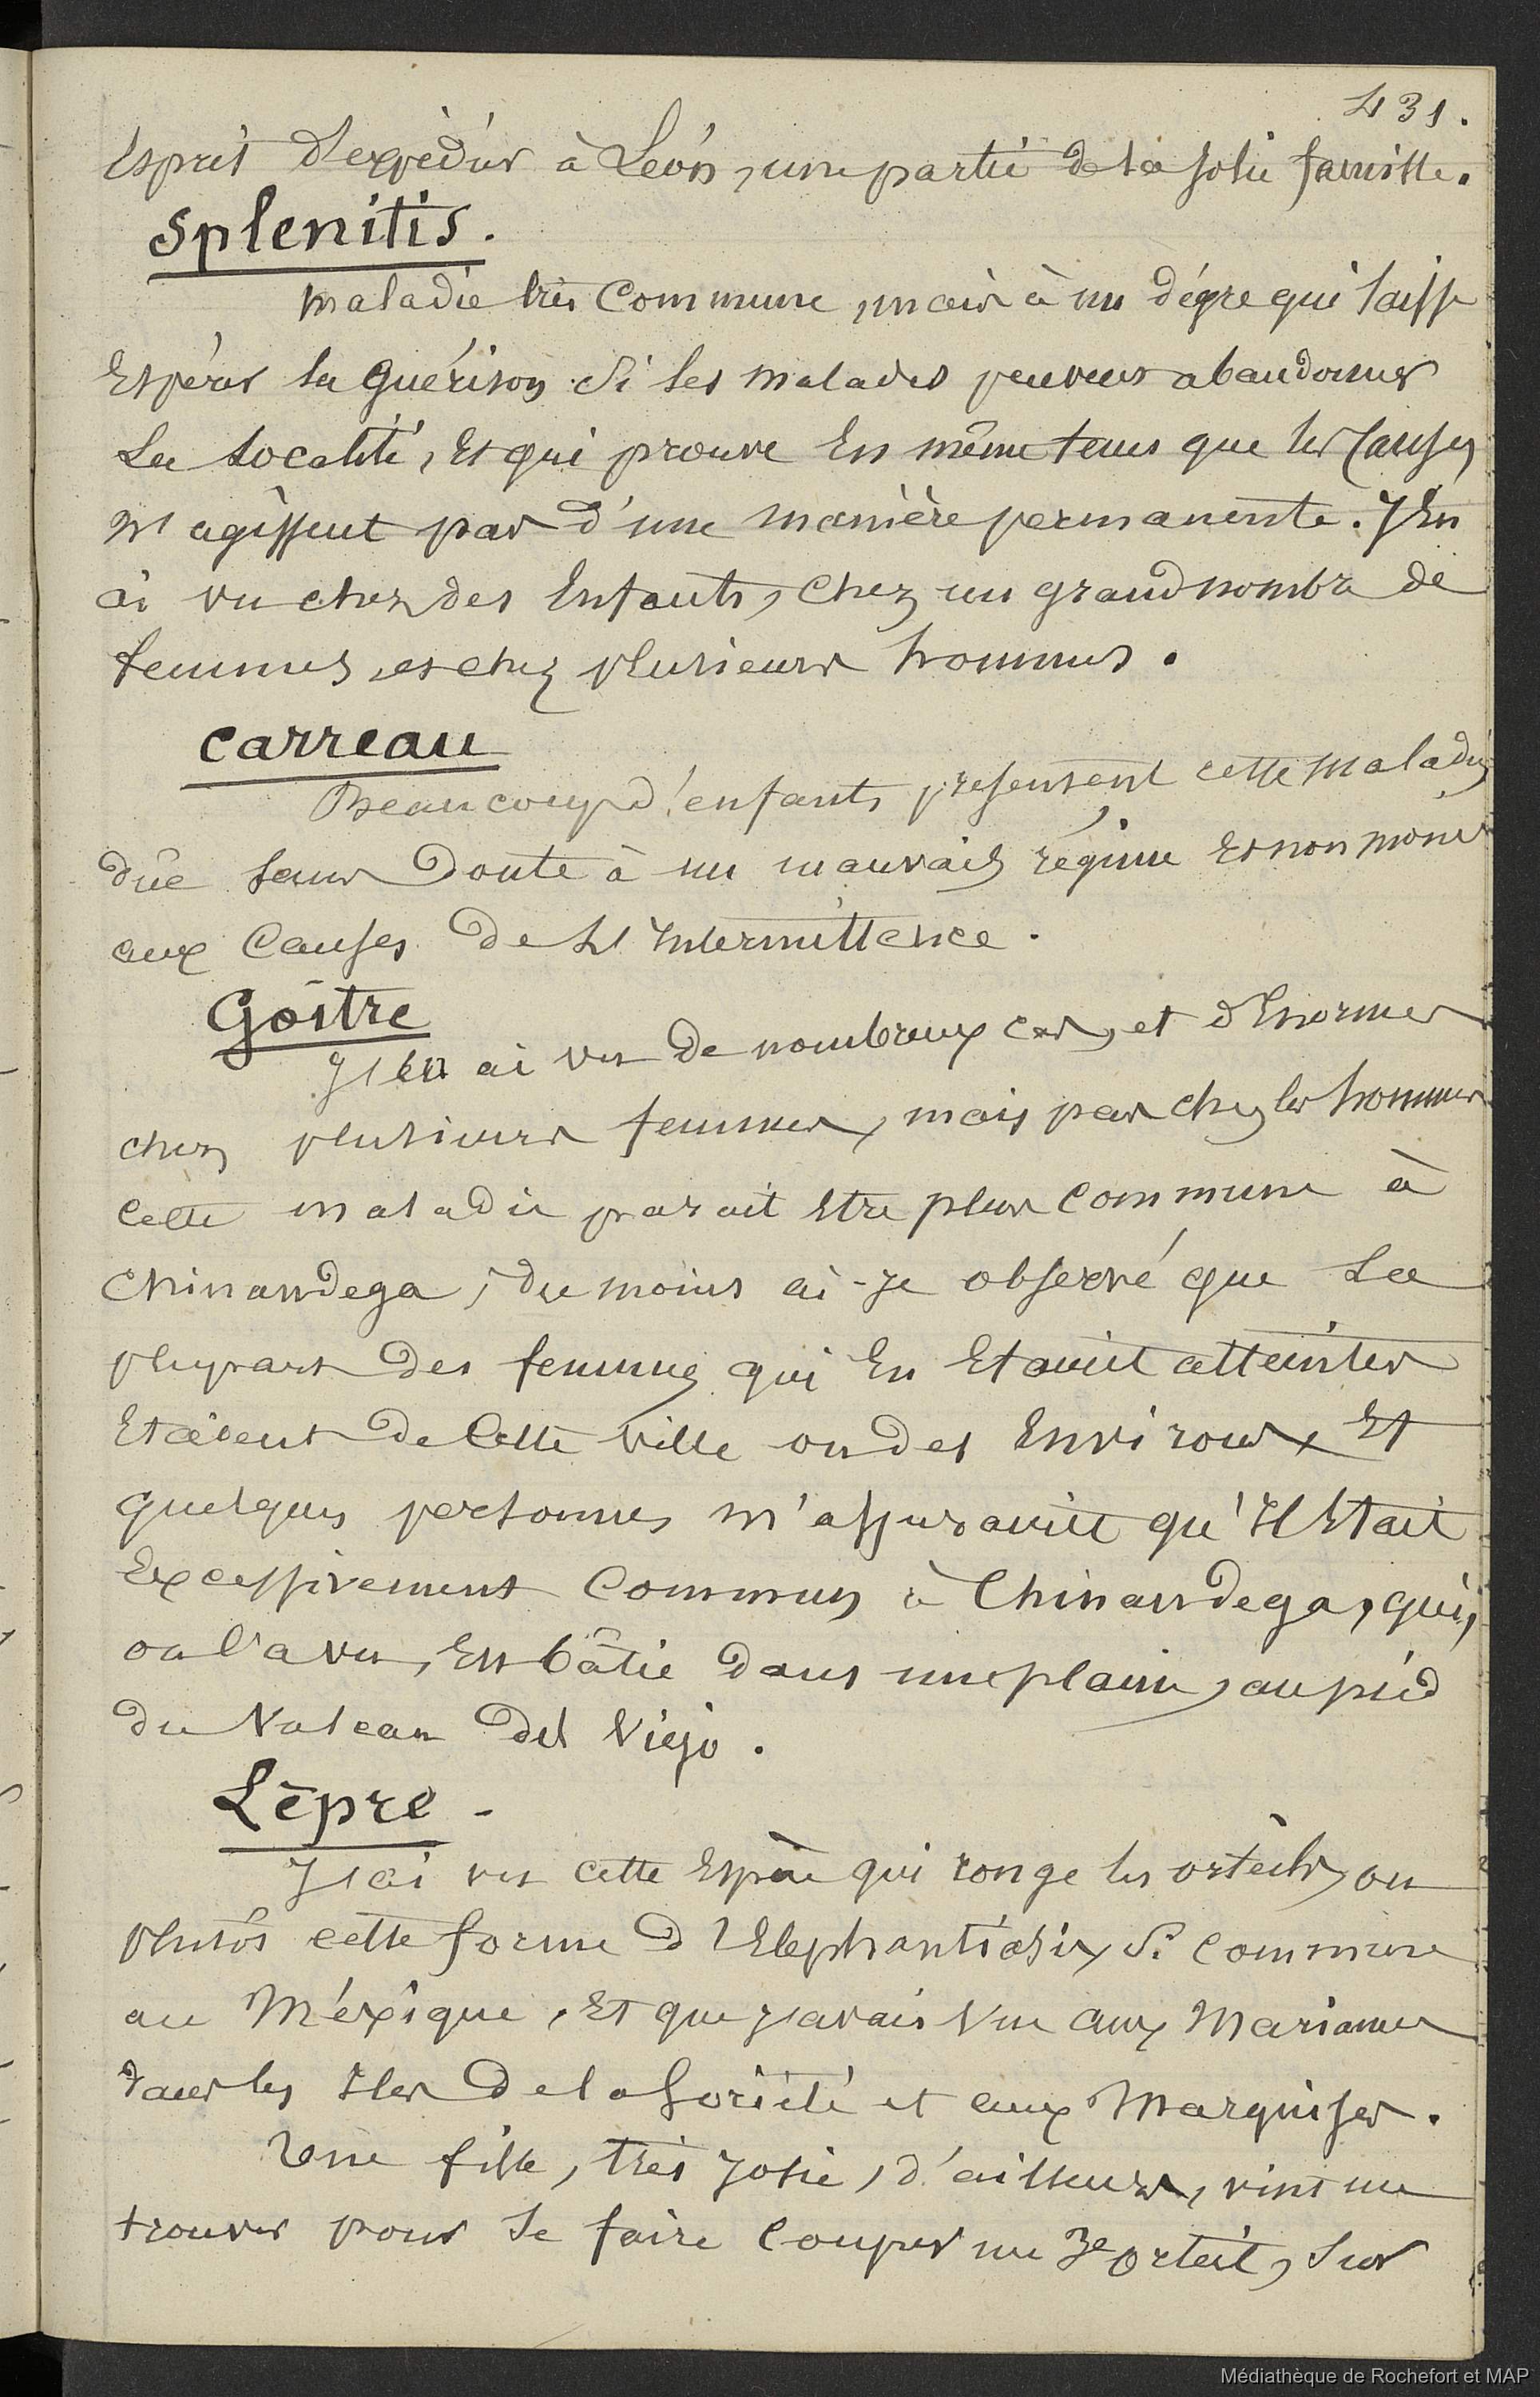 431.
Esprit d'expédier à León, une partie de la jolie famille.
Splenitis.
Maladie très commune, mais à un dégré qui laisse
Espérer la guérison si les malades peuvent abandonner
La localité, Et qui prouve En même tems que les Causes
N'agissent pas d'une manière permanente. J'En
ai vu chez des Enfants, chez un grand nombre de
femmes, et chez plusieurs hommes.
Carreau
Beaucoup d'enfants présentent cette maladie,
dûe sans doute à un mauvais régime Et non moins
aux Causes De L'Intermittence.
Goître
J'en ai vu de nombreux cas, et d'Enormes
chez plusieurs femmes, mais pas chez les hommes
Cette maladie parait Etre plus commune à
Chinandega, du moins ai-je observé que La
plupart des femmes qui En Etaient atteintes
Etaient de Cette ville ou des Environs, Et
quelques personnes m'assuraient qu'Il Etait
Excessivement Commun à Chinandega, qui,
on l'a vu, Est bâtie dans une plaine, au pied
du Volcan del Viejo.
Lèpre -
J'ai vu cette Espèce qui ronge les orteils, ou
plutôt cette forme d'Elephantiasis, si commune
au Méxique, Et que j'avais vue aux Mariannes
dans les Iles De la Société et aux Marquises.
Une fille, très jolie, d'ailleurs, vint me
trouver pour se faire Couper un 3e orteil, sur
Médiathèque de Rochefort et MAP